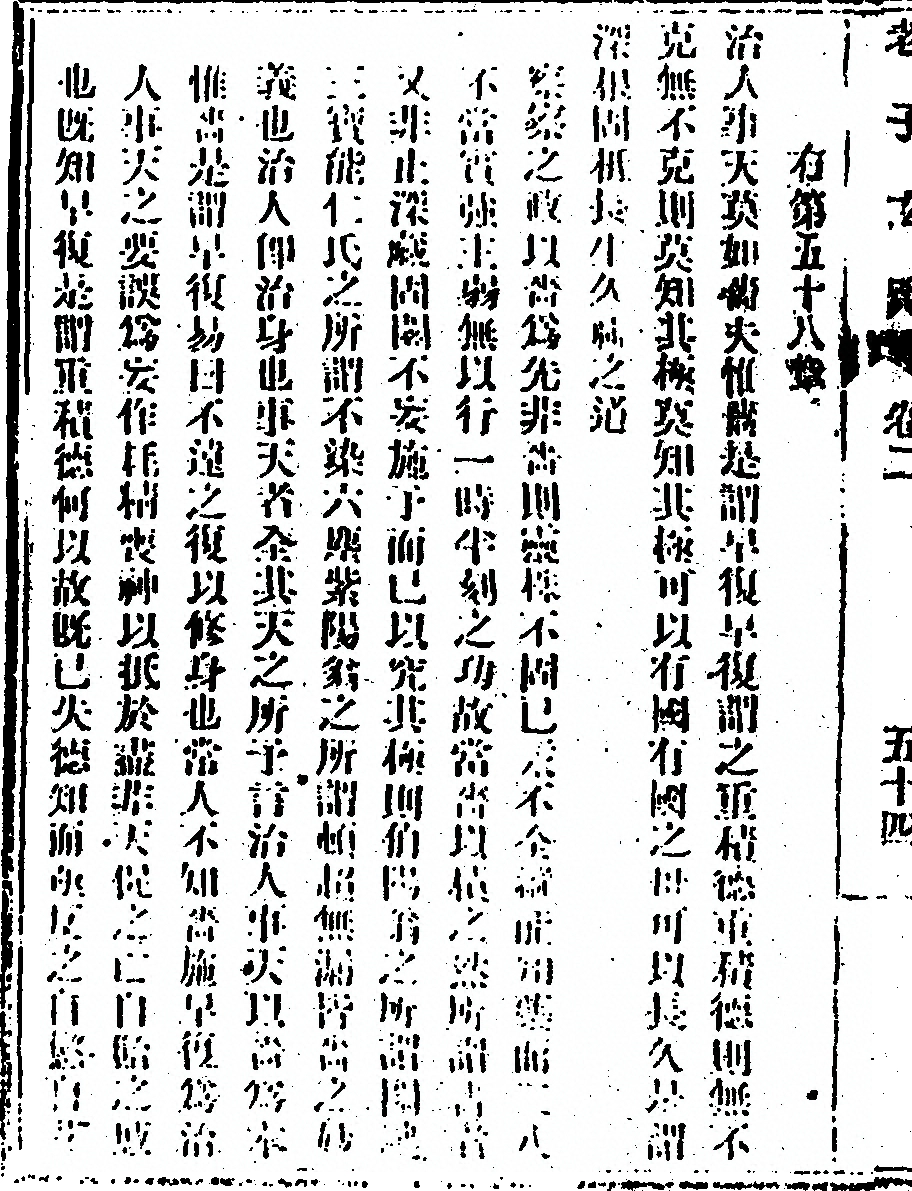 老子
卷二
五十四
右第五十八章
治人事天莫如嗇夫惟嗇是謂早復早復謂之重積德重積德則無不
克無不克則莫知其極莫知其極可以有國有國之母可以長久是謂
深根固柢長生久視之道
察察之政以嗇爲先非嗇則靈株不固已汞不全
不當實弥主弱無以行一時半刻之功故當嗇以積之然所謂嗇者
又非止深藏固閉不妄施予而已以究其極則伯陽翁之所謂固
三寶能仁氏之所謂不染六塵紫陽翁之所謂頓超無漏皆嗇之
義也治人卽治身也事天者全其天之所予言治人事天以嗇爲本
惟嗇是謂早復易曰不遠之復以修身也當人不知嗇施早復爲治
人事天之要誤爲妄作耗精喪神以抵於盡非天促之亡自貽之
也既知早復是謂重積德何以故既已失德知而亟反之自